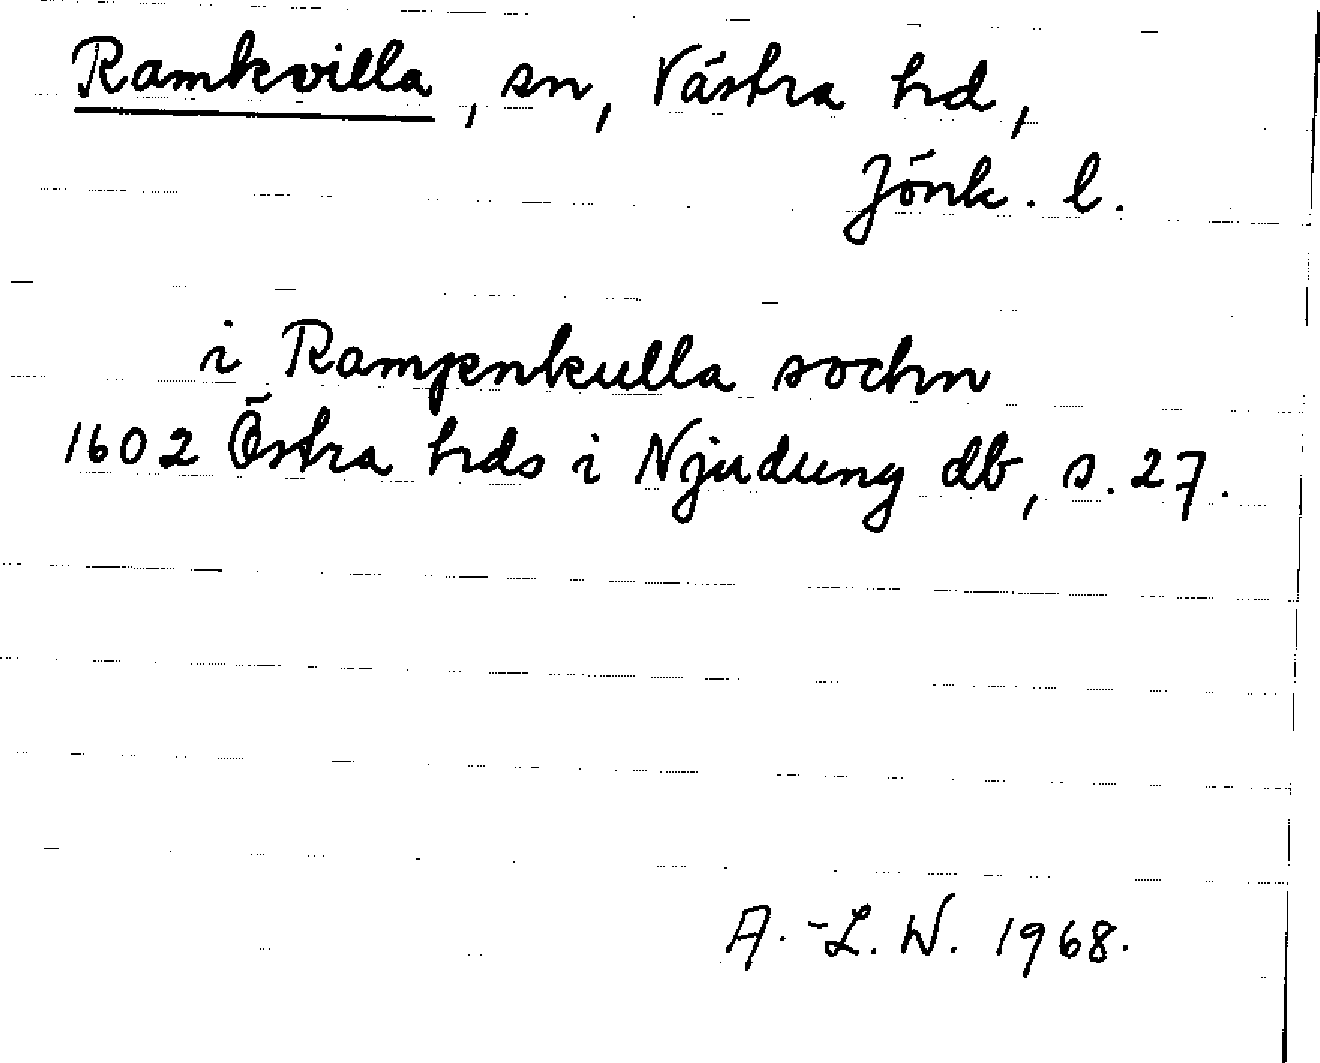 Ramkvilla, sn, Västra hd,
Jönk. l.
i Rampenkulla sochn
1602 Östra hds i Njudung db, s. 27.
A.-L. W. 1968.